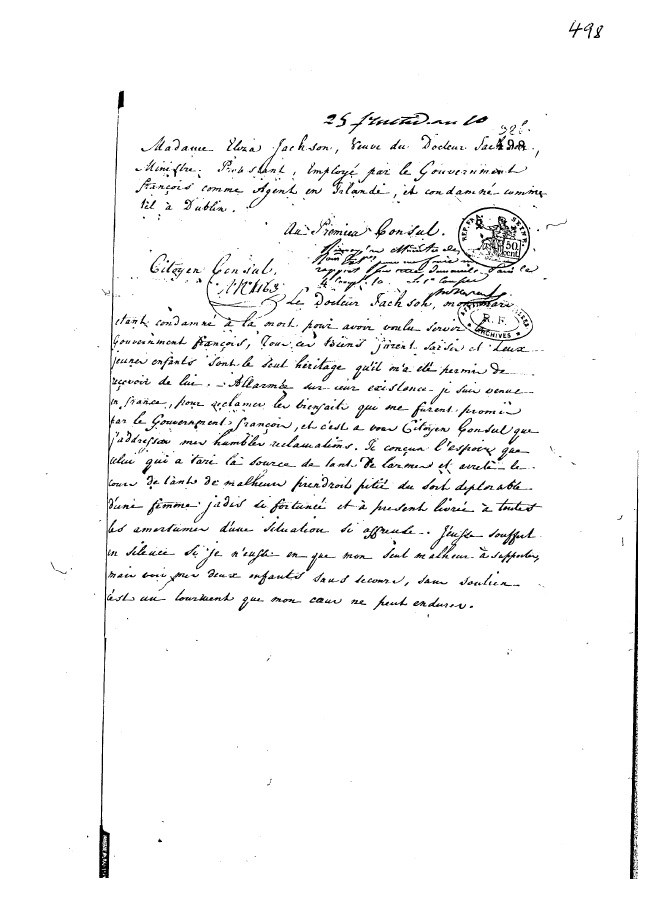 498
25 fructid. an 10
326.
Madame Eliza Jackson, Veuve du Docteur Jackson,
Ministre Protestant, Employé par le Gouvernement
françois comme Agent en Irlande, et condamné comme
tel à Dublin.
Au Premier Consul.
REP. FRA. SEINE
50 cent.
Citoyen Consul,
Renvoyé au Ministre des
pour faire un
rapport
le
Le Docteur Jackson, mon mari
étant condamné à la mort pour avoir voulu servir
R. F.
ARCHIVES
Gouvernement françois, Tous ces biens furent saisies et deux
jeunes enfants sont le seul héritage qu'il m'a été permis de
reçevoir de lui. Allarmée sur leur existence je suis venue
en france, pour reclamer les bienfaits qui me furent promis
par le Gouvernement françois, et c'est a vous Citoyen Consul que
j'addresse mes humbles reclamations. Je conçus l'espoir que
celui qui a tari la source de tant de larmes et arreté le
cours de tant de malheurs prendroit pitié du sort deplorable
d'une femme jadis si fortunée et à present livrée à toutes
les amertumes d'une situation si affreuse. J'eusse souffert
en silence si je n'eusse eu que mon seul malheur à supporter,
mais voir mes deux enfants sans secours, sans soutien
c'est un tourment que mon cœur ne peut endurer.